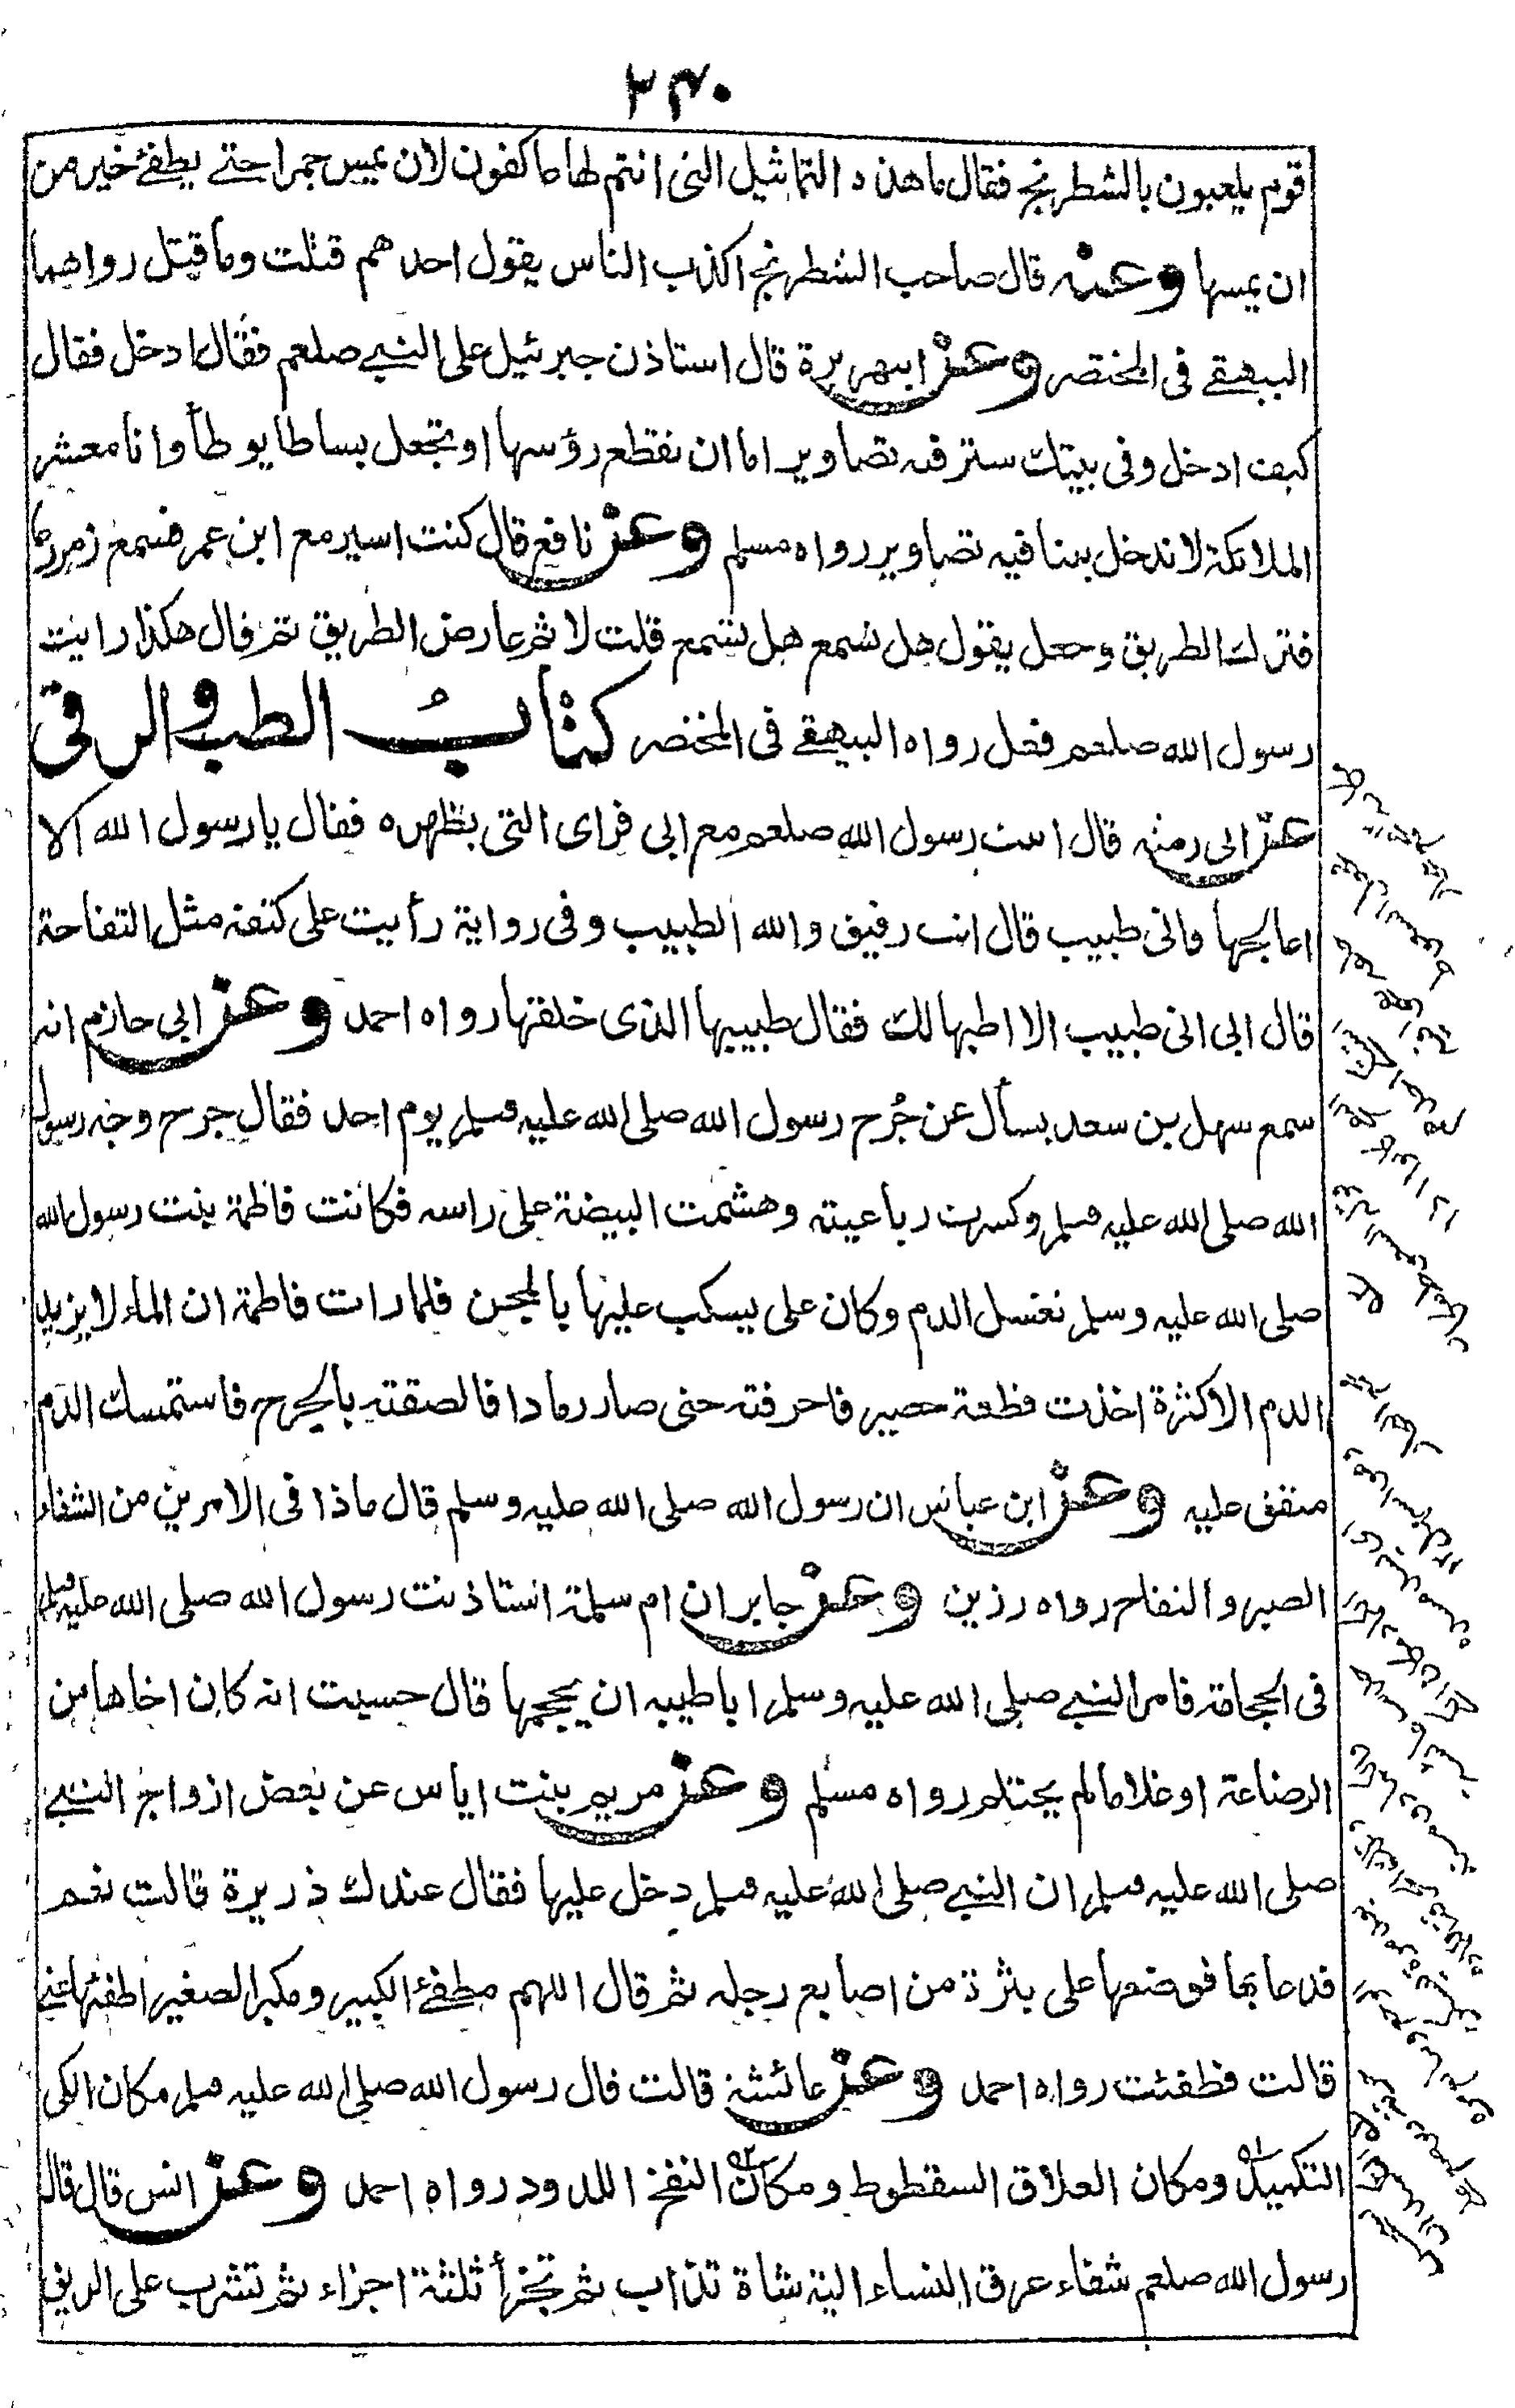 ٢٣٠
قوم يلعبون بالشطرنج فقال ما هذه التماثيل التى انتم لها عاكفون لان يمس جمرا حتى يطفئ خير من
ان يمسها وعنه قال صاحب الشطرنج اكذب الناس يقول احدهم قتلت وما قتل رواهما
البيهقے فى المختصر وعن ابيهريرة قال استاذن جبرئيل على النبے صلعم فقال ادخل فقال
كيف ادخل وفى بيتك ستر فيه تصاوير اما ان تقطع رؤسها او تجعل بساطا يوطأ وانا معشر
الملائكة لا ندخل بيتا فيه تصاوير رواه مسلم وعن نافع قال كنت اسير مع ابن عمر فسمع
فترك الطريق وجعل يقول هل تسمع هل تسمع قلت لا ثم عارض الطريق ثم قال هكذا رايت
رسول الله صلعم فعل رواه البيهقے فى المختصر كتاب الطب والرقى
عن ابى رمثه قال اتيت رسول الله صلعم مع ابى فراى التى بظهره فقال يا رسول الله الا
اعالجها فانى طبيب قال انت رفيق والله الطبيب وفى رواية رأيت على كتفه مثل التفاحة
قال ابى انى طبيب الا اطبها لك فقال طبيبها الذى خلقها رواه احمد وعن ابى حازم انه
سمع سهل بن سعد يسأل عن جُرح رسول الله صلى الله عليه وسلم يوم احد فقال جرح وجه رسول
الله صلى الله عليه وسلم وكسرت رباعيته وهشمت البيضة على راسه فكانت فاطمة بنت رسول الله
صلى الله عليه وسلم تغسل الدم وكان على يسكب عليها بالمجن فلما رات فاطمة ان الماء لا يزيد
الدم الا كثرة اخذت قطعة حصير فاحرقته حتى صار رمادا فالصقته بالجرح فاستمسك الدم
متفق عليه وعن ابن عباس ان رسول الله صلى الله عليه وسلم قال ماذا فى الامرين من الشفاء
الصبر و رواه رزين وعن جابر ان ام سلمة استاذنت رسول الله صلى الله عليه وسلم
فى الحجامة فامر النبے صلى الله عليه وسلم ابا طيبه ان يحجمها قال حسبت انه كان اخاها من
الرضاعة او غلاما لم يحتلم رواه مسلم وعن مريم بنت اياس عن بعض ازواج النبے
صلى الله عليه وسلم ان النبے صلى الله عليه وسلم دخل عليها فقال عندك ذريرة قالت نعم
فدعا بها فوضعها على بثرة من اصابع رجله ثم قال اللهم مطفئ الكبير ومكبر الصغير اطفئها عنى
قالت فطفئت رواه احمد وعن عائشة قالت قال رسول الله صلى الله عليه وسلم مكان الكى
التكميد ومكان العلاق السقطوط ومكان النفخ اللدود رواه احمد وعن انس قال قال
رسول الله صلعم شفاء عرق النساء الية شاة تذاب ثم تجزأ ثلثة اجزاء ثم تشرب على الريق